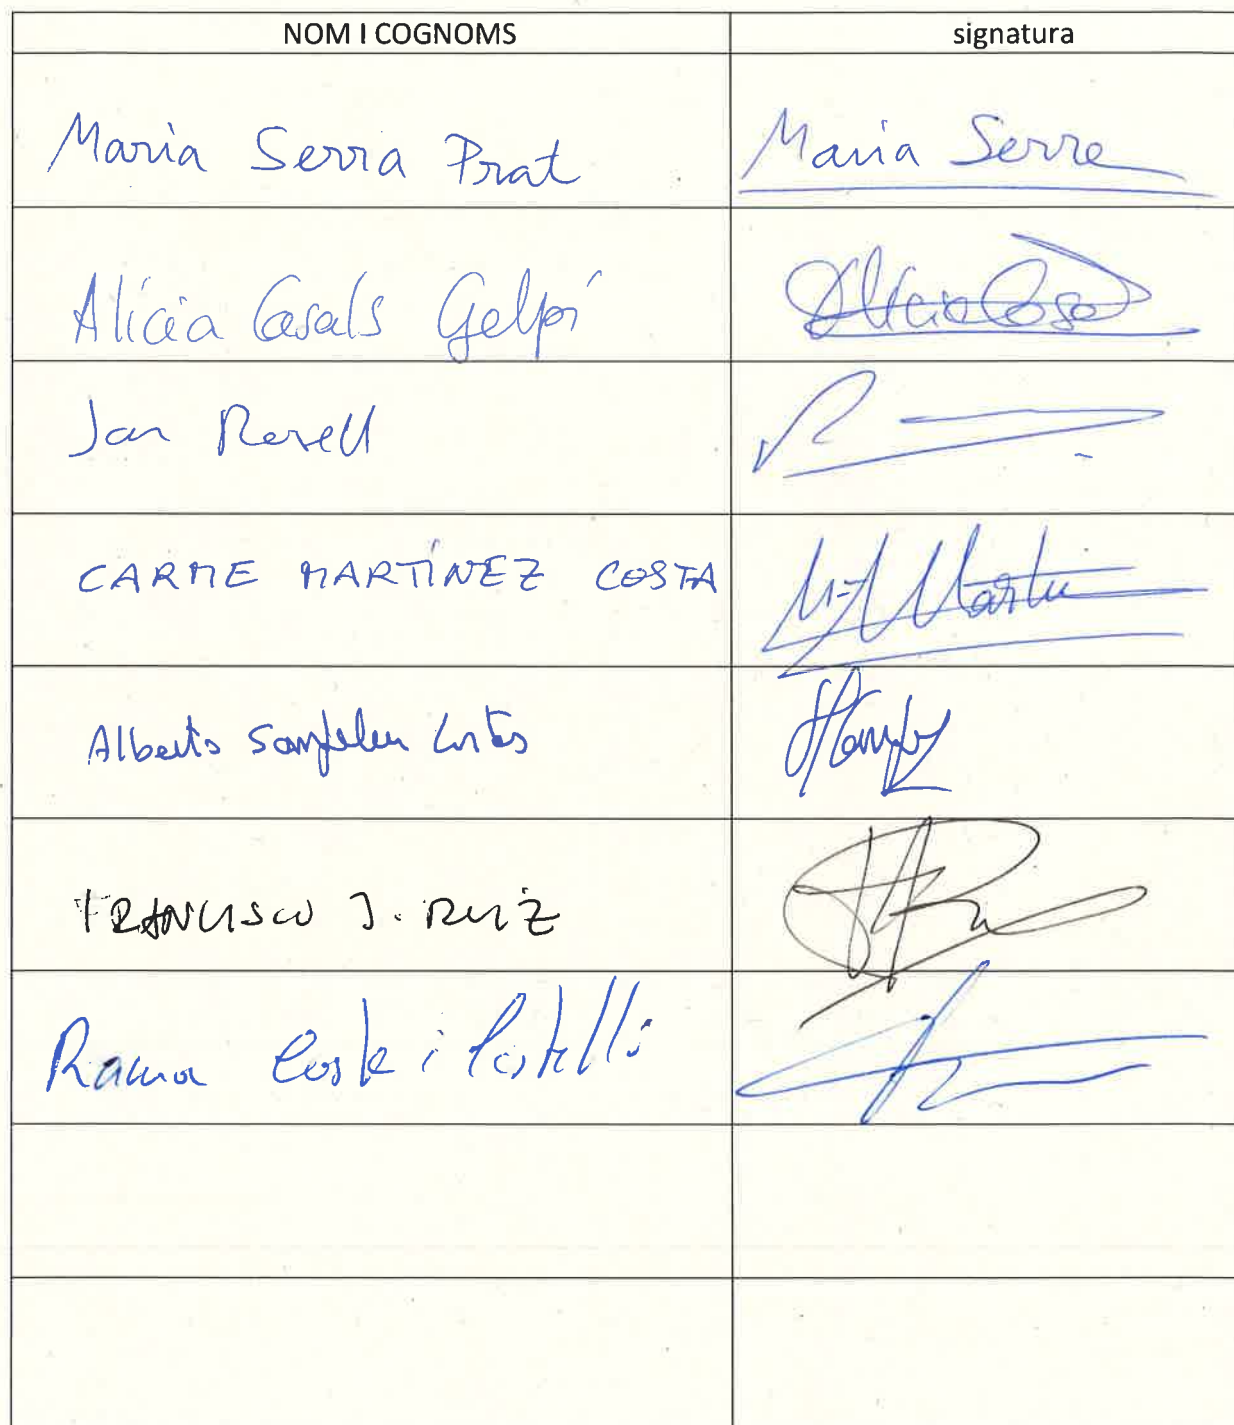 NOM I COGNOMS signatura
Maria Serra Prat Maria Serra
Alícia Casals Gelpí Alícia Casal
Jan Rosell
CARME MARTÍNEZ COSTA Martín
Alberto Sanfeliu Cortés
FRANCISCO J. RUIZ
Ramon Costa i Castelló